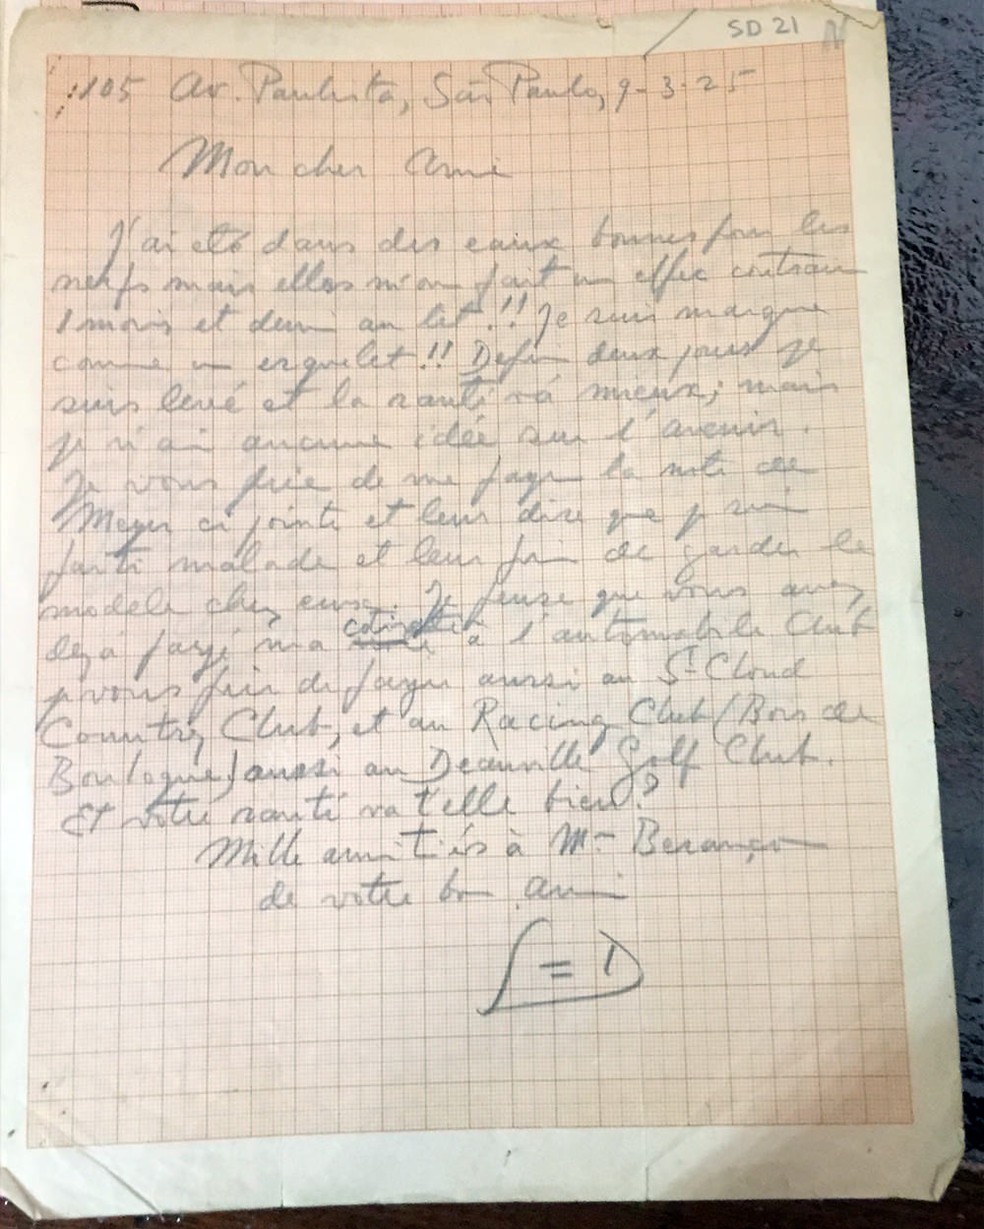 SD 21 N
105 Av. Paulista, São Paulo, 9-3-25
Mon cher Ami
J'ai eté dans des eaux bonnes pour les
nerfs mais elles m'on fait un effec contrair
1 mois et demi au lit!!! Je suis maigre
comme un esquelet!! Depui deux jours je
suis levé et la santé vá mieux; mais
je n'ai aucune idée sur l'avenir.
Je vous prie de me payer la note de
Meyer ci jointe et leur dire que je sui
parti malade et leur prie de garder le
modele chez eux. Je pense que vous avez
deja payé ma cotisation à l'automobile Club
je vous prie de payer aussi au St Cloud
Country Club, et au Racing Club (Bois de
Boulogne) aussi au Deauville Golf Club.
Et votre santé va t'elle bien?
Mille amitiés à Me Besançon
de votre bon ami
= D